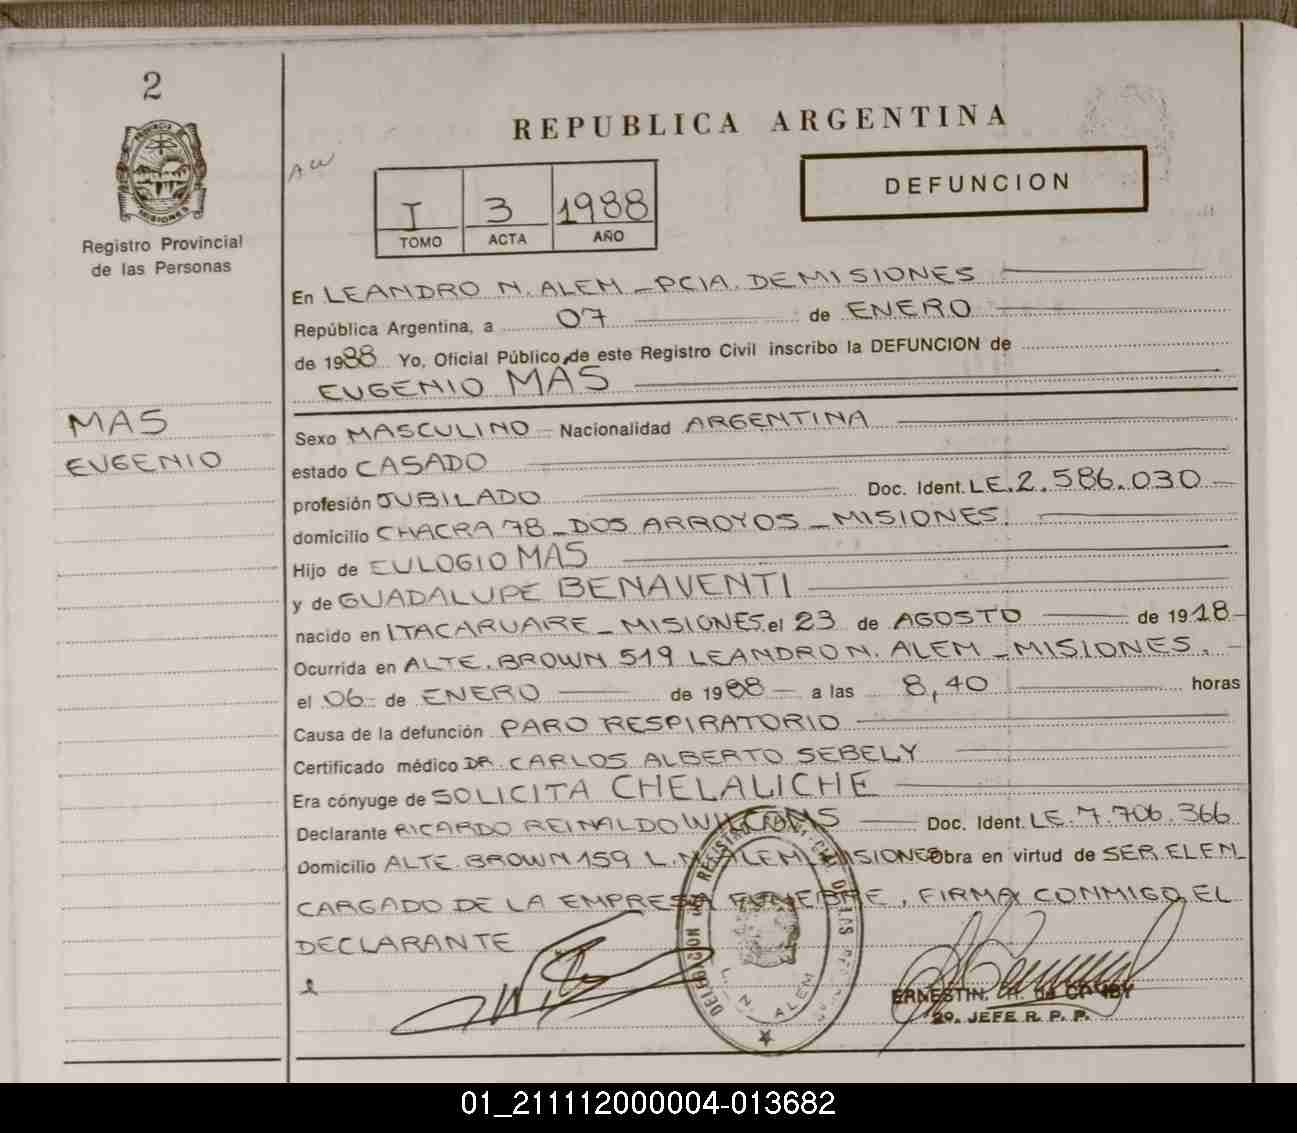 2
PROVINCIA DE MISIONES
Registro Provincial
de las Personas
AW
REPUBLICA ARGENTINA
I 3 1988
TOMO ACTA AÑO
DEFUNCION
En LEANDRO N. ALEM - PCIA. DE MISIONES
República Argentina, a 07 de ENERO
de 1988 Yo, Oficial Público de este Registro Civil inscribo la DEFUNCION de
EUGENIO MAS
MAS
EUGENIO
Sexo MASCULINO - Nacionalidad ARGENTINA
estado CASADO
profesión JUBILADO Doc. Ident. LE. 2.586.030 -
domicilio CHACRA 78 - DOS ARROYOS - MISIONES.
Hijo de EULOGIO MAS
y de GUADALUPE BENAVENTI
nacido en ITACARUARE - MISIONES. el 23 de AGOSTO de 1918 -
Ocurrida en ALTE. BROWN 519 LEANDRO N. ALEM - MISIONES. -
el 06 - de ENERO de 1988 - a las 8,40 horas
Causa de la defunción PARO RESPIRATORIO
Certificado médico DR. CARLOS ALBERTO SEBELY
Era cónyuge de SOLICITA CHELALICHE
Declarante RICARDO REINALDO Doc. Ident. LE. 7.706.366
Domicilio ALTE. BROWN 159 L. N. ALEM MISIONES Obra en virtud de SER EL EN
CARGADO DE LA EMPRESA FUNEBRE, FIRMA CONMIGO EL
DECLARANTE
L. N. ALEM
JEFE R. P. P.
01_211112000004-013682